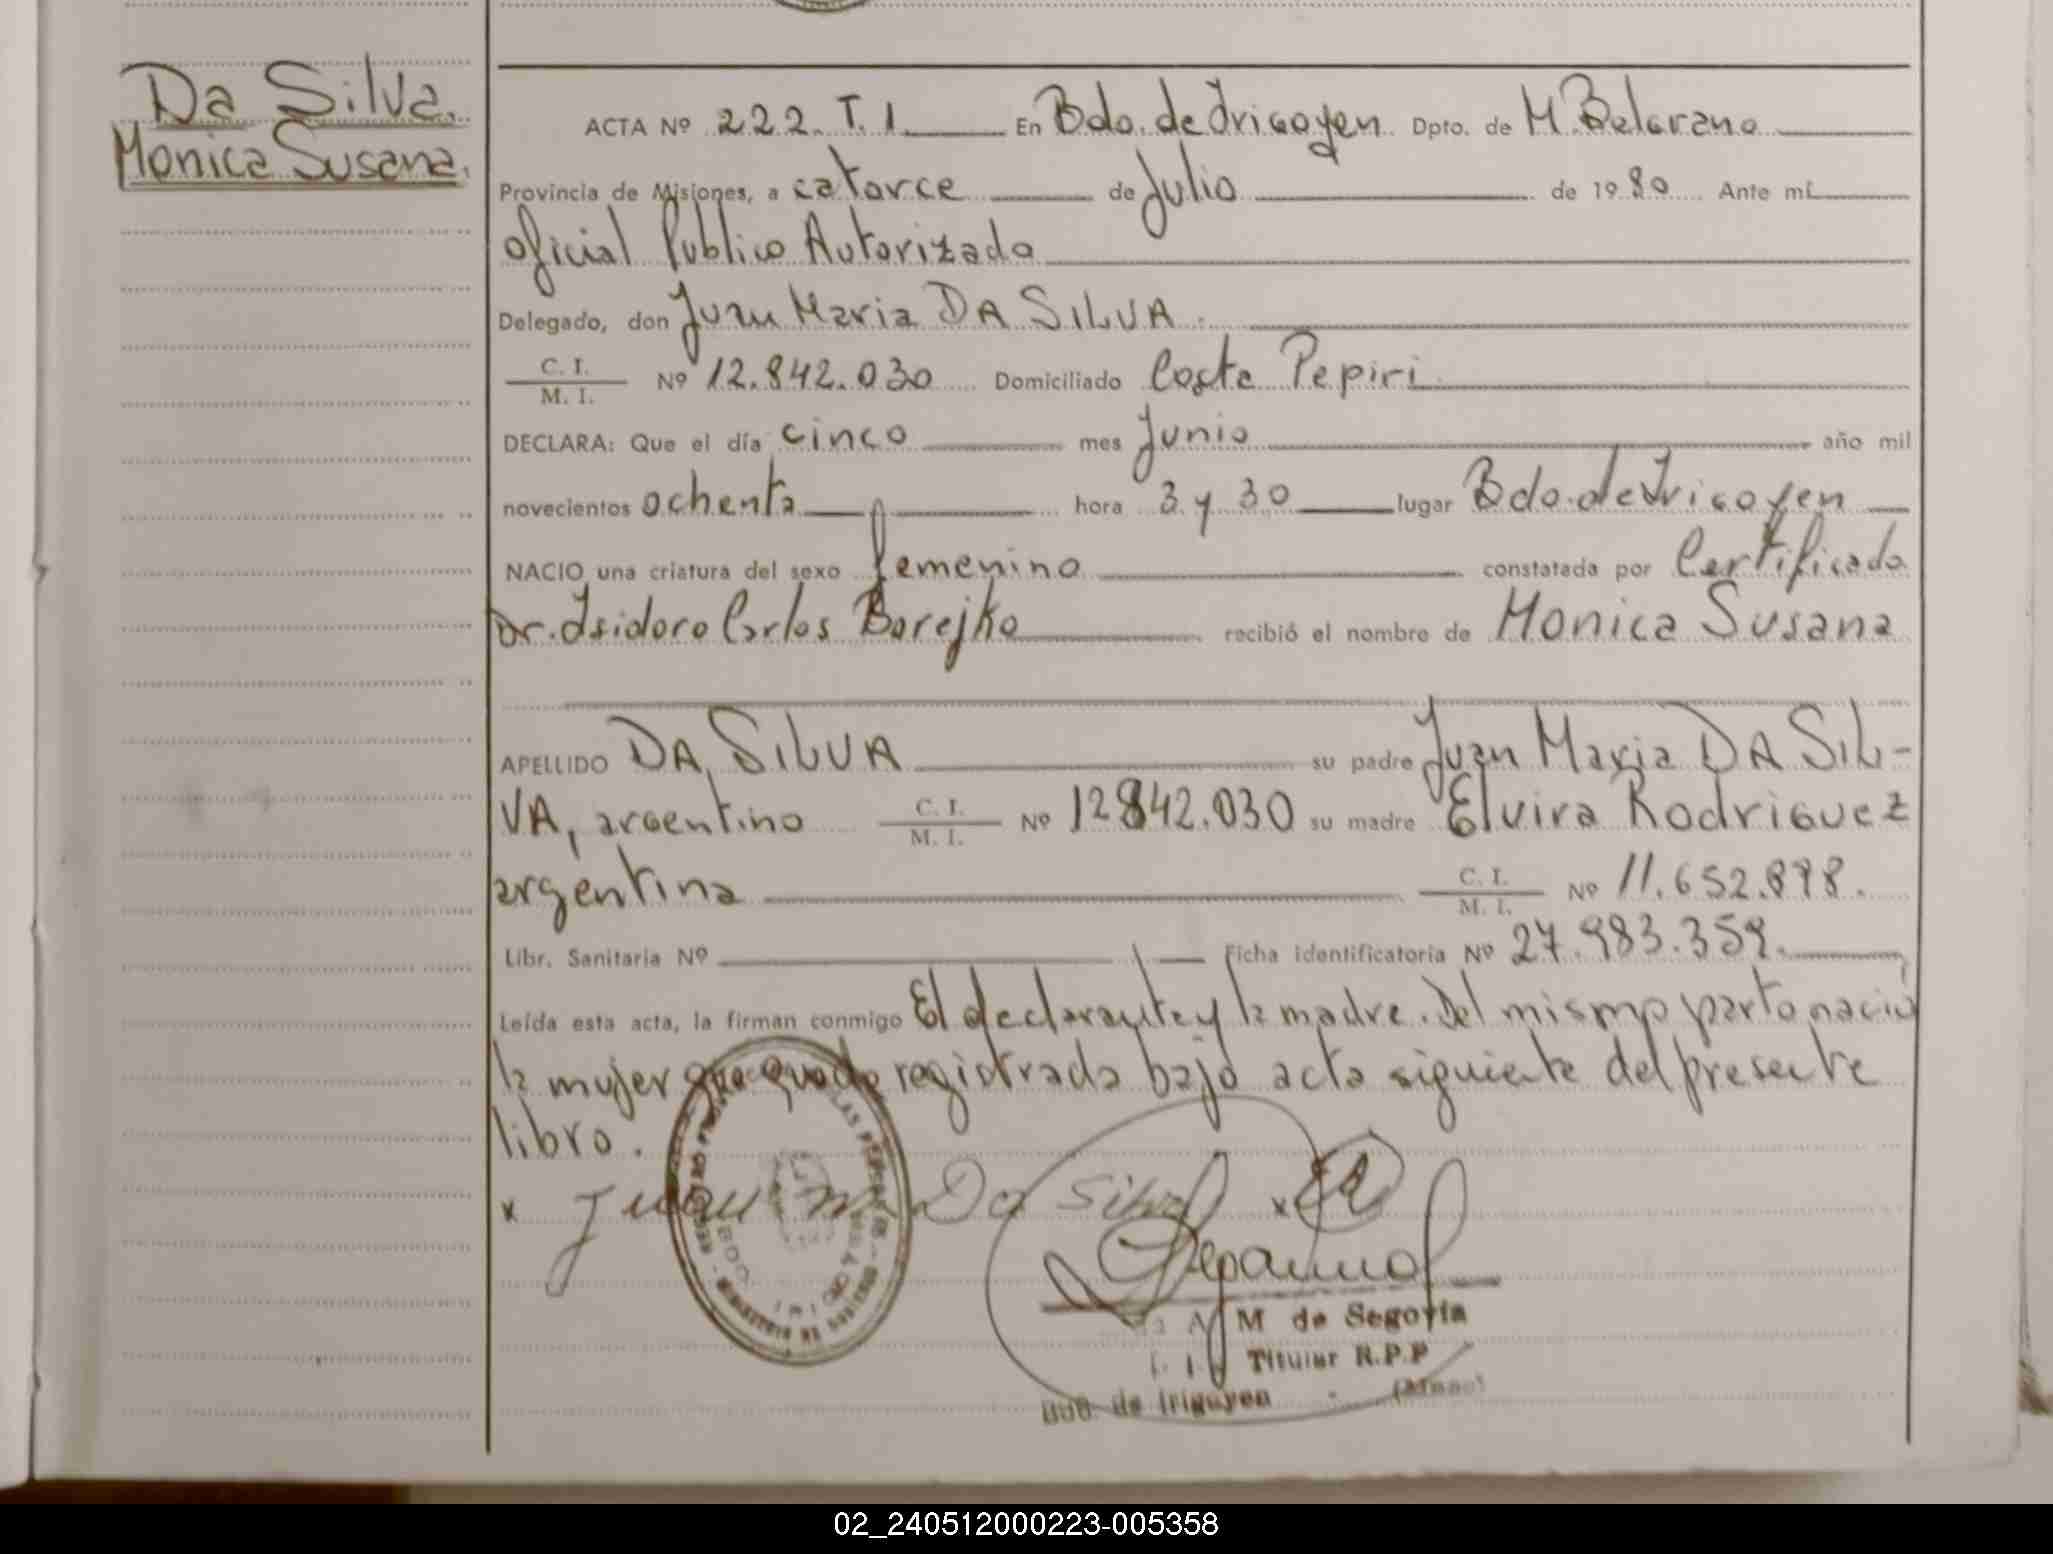 Da Silva.
Monica Susana.
ACTA Nº 222. T. 1 En Bdo. de Irigoyen Dpto. de M. Belgrano
Provincia de Misiones, a catorce de Julio de 1980 Ante mí
Oficial Publico Autorizado
Delegado, don Juan Maria DA SILVA.
C. I.
M. I.
Nº 12.842.030 Domiciliado Costa Pepiri
DECLARA: Que el día cinco mes Junio año mil
novecientos ochenta hora 3 y 30 lugar Bdo. de Irigoyen
NACIO una criatura del sexo femenino constatada por Certificado
Dr. Isidoro Carlos Borejko recibió el nombre de Monica Susana
APELLIDO DA SILVA su padre Juan Maria DA SIL-
VA, argentino C. I.
M. I.
Nº 12842.030 su madre Elvira Rodriguez
argentina C. I.
M. I.
Nº 11.652.898.
Libr. Sanitaria Nº Ficha identificatoria Nº 27.983.359.
Leída esta acta, la firman conmigo El declarante y la madre. Del mismo parto nació
la mujer que quedo registrada bajo acta siguiente del presente
libro.
x Juan M Da Silva x
M de Segovia
Titular R.P.P
Bdo. de Irigoyen
02_240512000223-005358